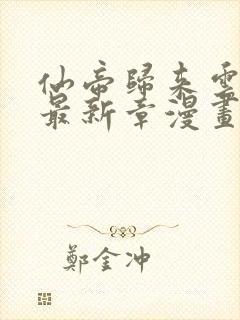 仙帝歸來雲
最新章漫畫
鄭金冲